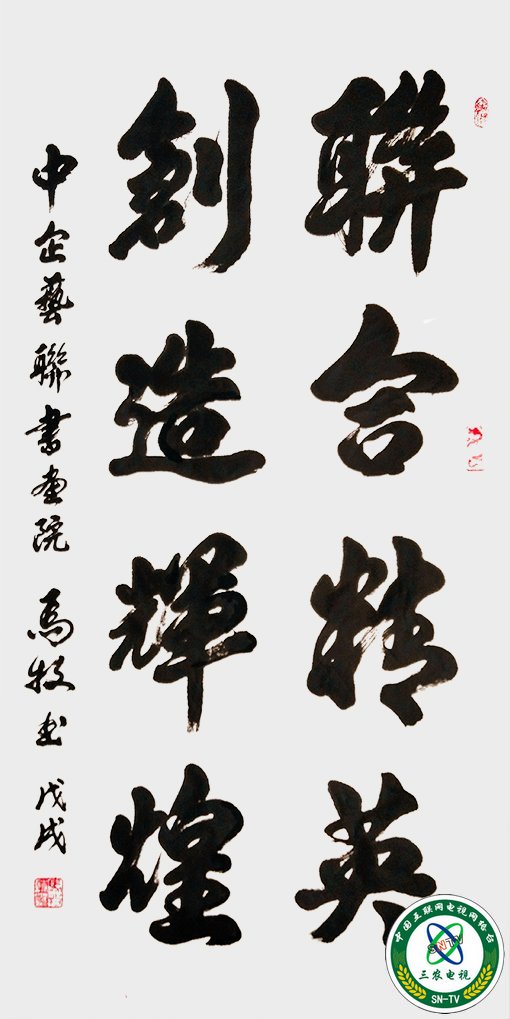 聯合精英
創造輝煌
中企藝聯書画院 馬牧书 戊戌
中国互联网电视网络台
SNTV
三农电视
SN-TV